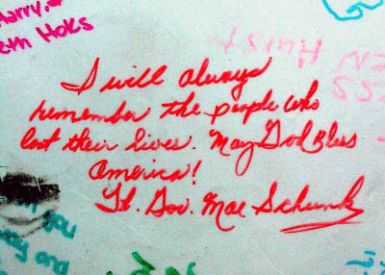 Harry,
Beth Hoks
I will always
remember the people who
lost their lives. May God Bless
America!
Lt. Gov. Mae Schunk
you
and